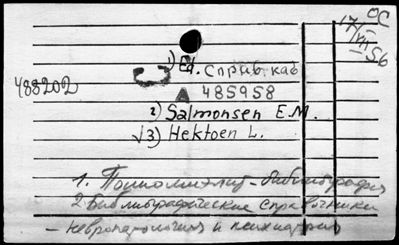 ОС
17/VII 56
1) Ed. Справ. каб
488202
А 485958
2) Salmonsen E.M.
√3) Hektoen L.
1. Полиомиэлит - библиография
2. Библиографические справочники
- невропатология и психиатрия